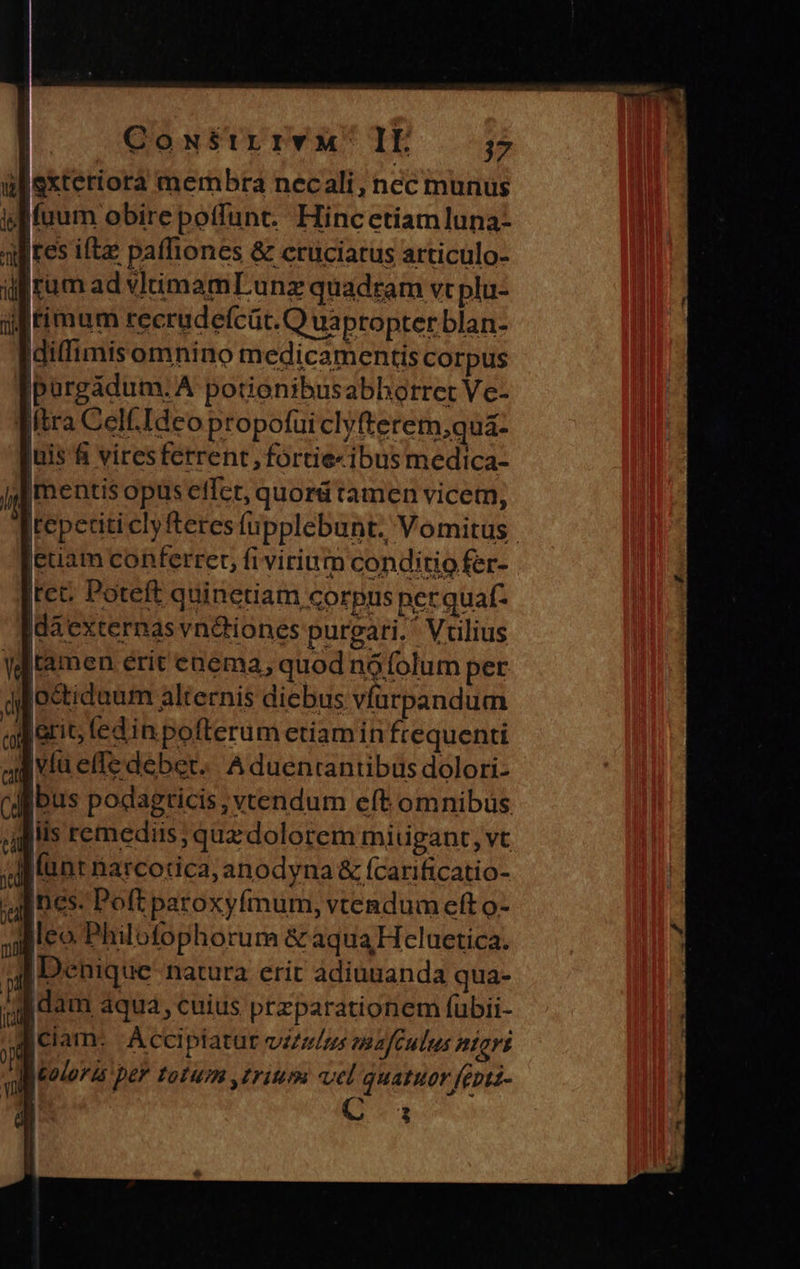 CONSILIVM II. 37
exteriora membra nec ali, nec munus
ſuum obire poſſunt. Hinc etiam luna-
res iſtæ paſſiones & cruciatus articulo-
rum ad vltimam Lunæ quadram vt plu-
rimum recrudeſcũt. Quapropter blan-
diſſimis omnino medicamentis corpus
purgãdum. A potionibus abhorret Ve-
ſtra Celſ. Ideo propoſui clyſterem, quã-
uis ſi vires ferrent, fortioribus medica-
mentis opus eſſet, quorũ tamen vicem,
repetiti clyſteres ſupplebunt. Vomitus
etiam conferret, ſi virium conditio fer-
ret. Poteſt quinetiam corpus per quaſ-
dã externas vnctiones purgari. Vtilius
tamen erit enema, quod nõ ſolum per
octiduum alternis diebus vſurpandum
erit, ſed in poſterum etiam in frequenti
vſu eſſe debet. Aduentantibus dolori-
bus podagricis, vtendum eſt omnibus
iis remediis, quæ dolorem mitigant, vt
ſunt narcotica, anodyna & ſcarificatio-
nes. Poſt paroxyſmum, vtendum eſt o-
leo Philoſophorum & aqua Heluetica.
Denique natura erit adiuuanda qua-
dam aqua, cuius præparationem ſubii-
ciam. Accipiatur vitulus maſculus nigri
coloris per totum, trium vel quatuor ſepti-
C 3